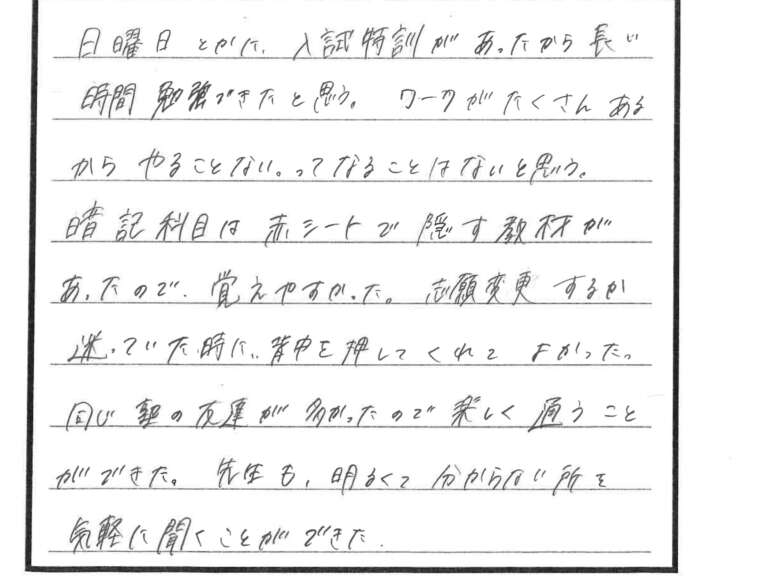 日曜日とかに、入試特訓があったから長い
時間勉強できたと思う。ワークがたくさんある
からやることない。ってなることはないと思う。
暗記科目は赤シートで隠す教材が
あったので、覚えやすかった。志願変更するか
迷っていた時に、背中を押してくれてよかった。
同じ塾の友達が多かったので楽しく通うこと
ができた。先生も、明るくて分からない所を
気軽に聞くことができた。